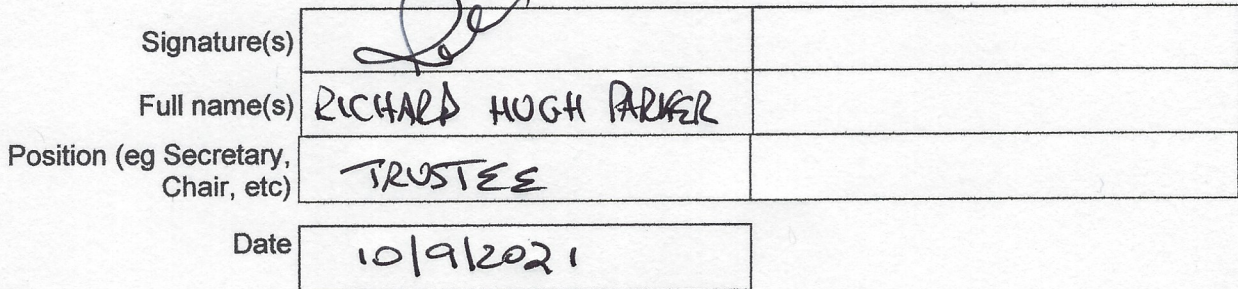 Signature(s)
Full name(s) RICHARD HUGH PARKER
Position (eg Secretary,
Chair, etc) TRUSTEE
Date 10/9/2021